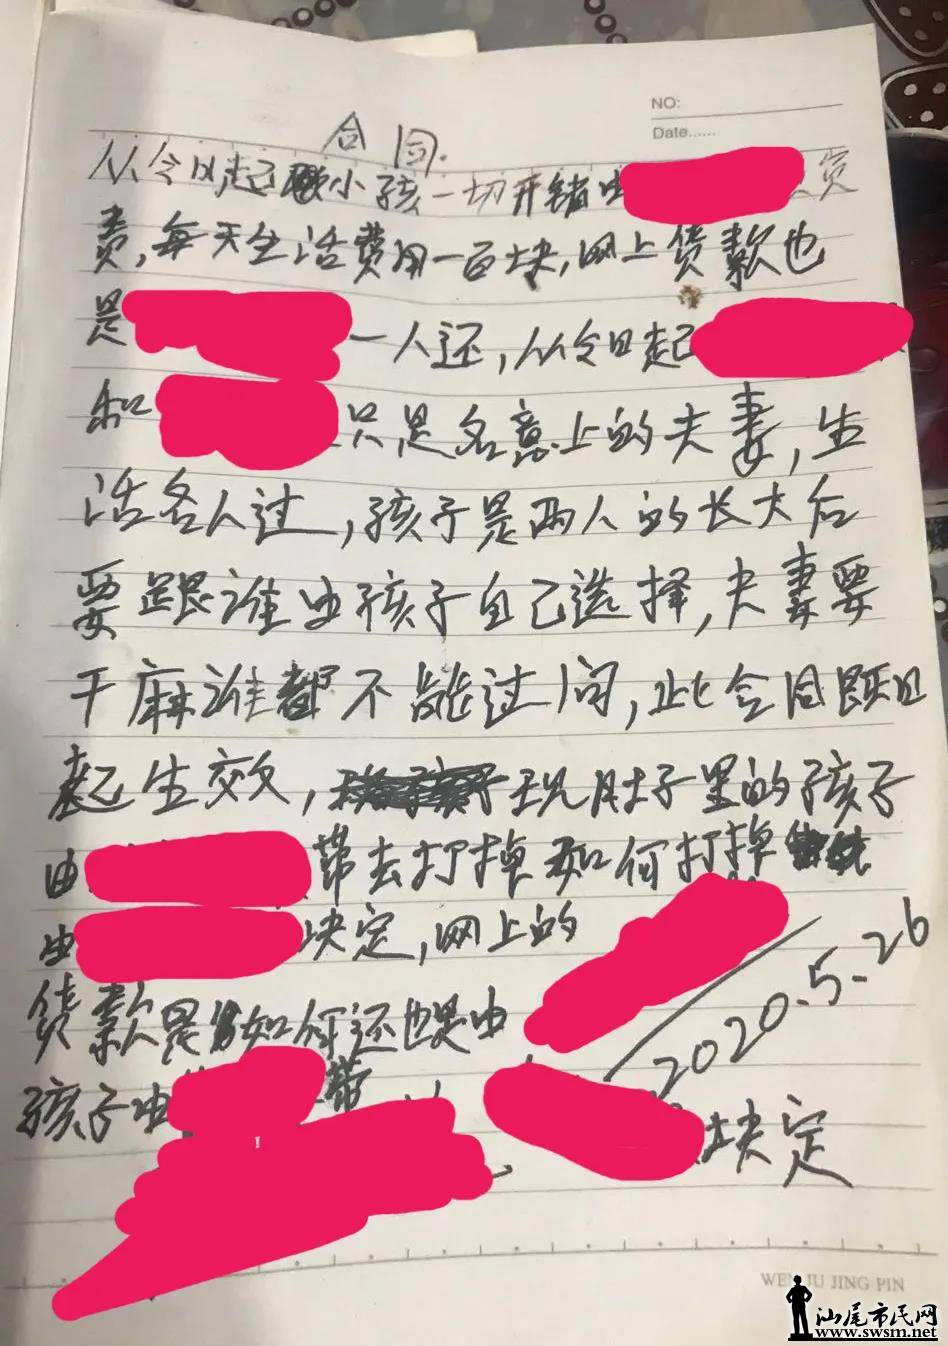 NO:
Date......
合同.
从今日起 小孩一切开销由 负
责,每天生活费用一百块,网上贷款也
是 一人还,从今日起
和 只是名意上的夫妻,生
活各人过,孩子是两人的长大后
要跟谁由孩子自己选择,夫妻要
干麻谁都不能过问,此合同既日
起生效, 现肚子里的孩子
由 带去打掉如何打掉
由 决定,网上的
贷款是 如何还也是由
2020.5.26
孩子由 带
决定
WEN JU JING PIN
汕尾市民网
www.swsm.net